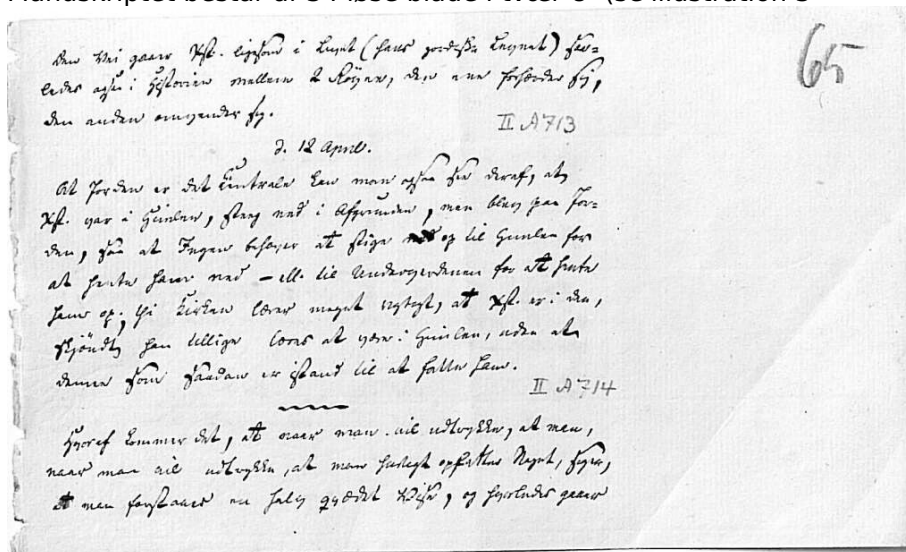 den Vei gaaer Xst. ligesom i Livet (hans jordiske Levnet) saa-
ledes også i Historien mellem 2 Røvere, den ene forhærder sig,
den anden omvender sig.
II A 713
65
d. 12 April.
At Jorden er det Centrale kan man ogsaa see deraf, at
Xst. var i Himlen, steeg ned i Afgrunden, men blev paa Jor-
den, saa at Ingen behøver at stige op til Himlen for
at hente ham ned – ell. til Underverdenen for at hente
ham op; thi Kirken lærer meget rigtigt, at Xst. er i den,
skjøndt han tillige læres at være i Himlen, uden at
denne som saadan er istand til at fatte ham.
II A 714
Hvoraf kommer det, at naar man vil udtrykke, at man,
naar man vil udtrykke, at man hurtigt opfatter Noget, siger,
at man forstaaer en halv qvædet Vise, og hvorledes gaaer